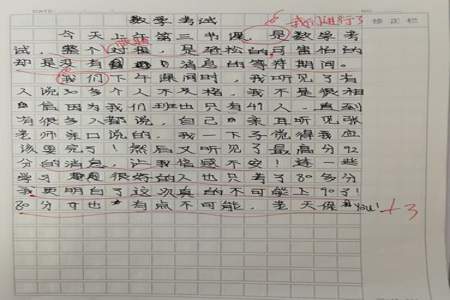 数学考试
我们进行了
今天上午第三节课，是数学考
试，整个过程，是轻松的可害怕的
却是没有消息的等待期间。
我们下午课间时，我听见了有
人说30多个人不及格，我不是很相
信因为我们班也只有49人，直到
有很多人都说，自己亲耳听见张
老师亲口说的，我一下子觉得我应
该里完了！然后又听见了最高分92
分的消息，让我倍感不安！连一些
学习很好的人也只考了80多分
我要明白了这次真的不可能上90了！
80分也有点不可能，老天保You!
+3